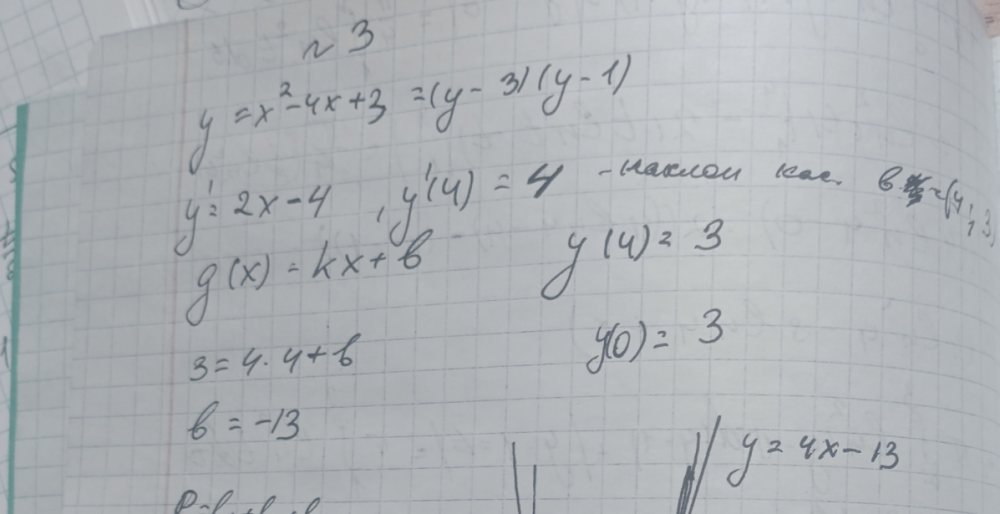 № 3
y = x² - 4x + 3 = (y - 3)(y - 1)
y' = 2x - 4 , y'(4) = 4 - наклон кас. в = (4; 3)
g(x) = kx + b y(4) = 3
y(0) = 3
3 = 4 · 4 + b
b = -13
y = 4x - 13